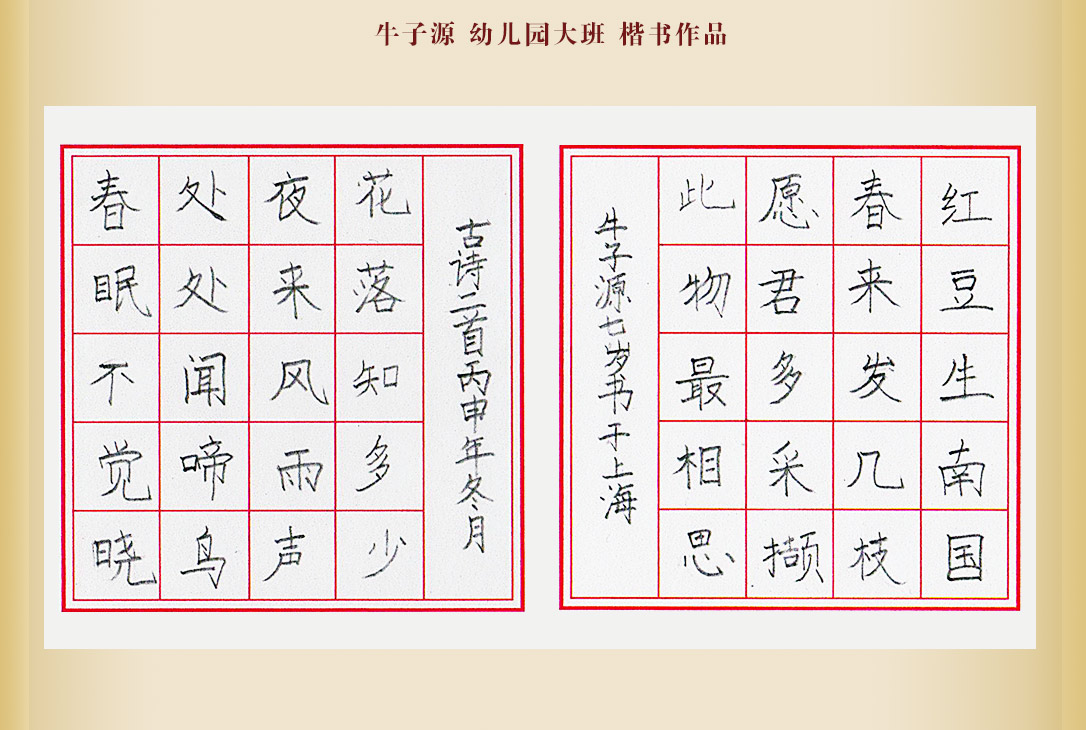 牛子源 幼儿园大班 楷书作品
春眠不觉晓
处处闻啼鸟
夜来风雨声
花落知多少
古诗二首丙申年冬月
红豆生南国
春来发几枝
愿君多采撷
此物最相思
牛子源七岁书于上海